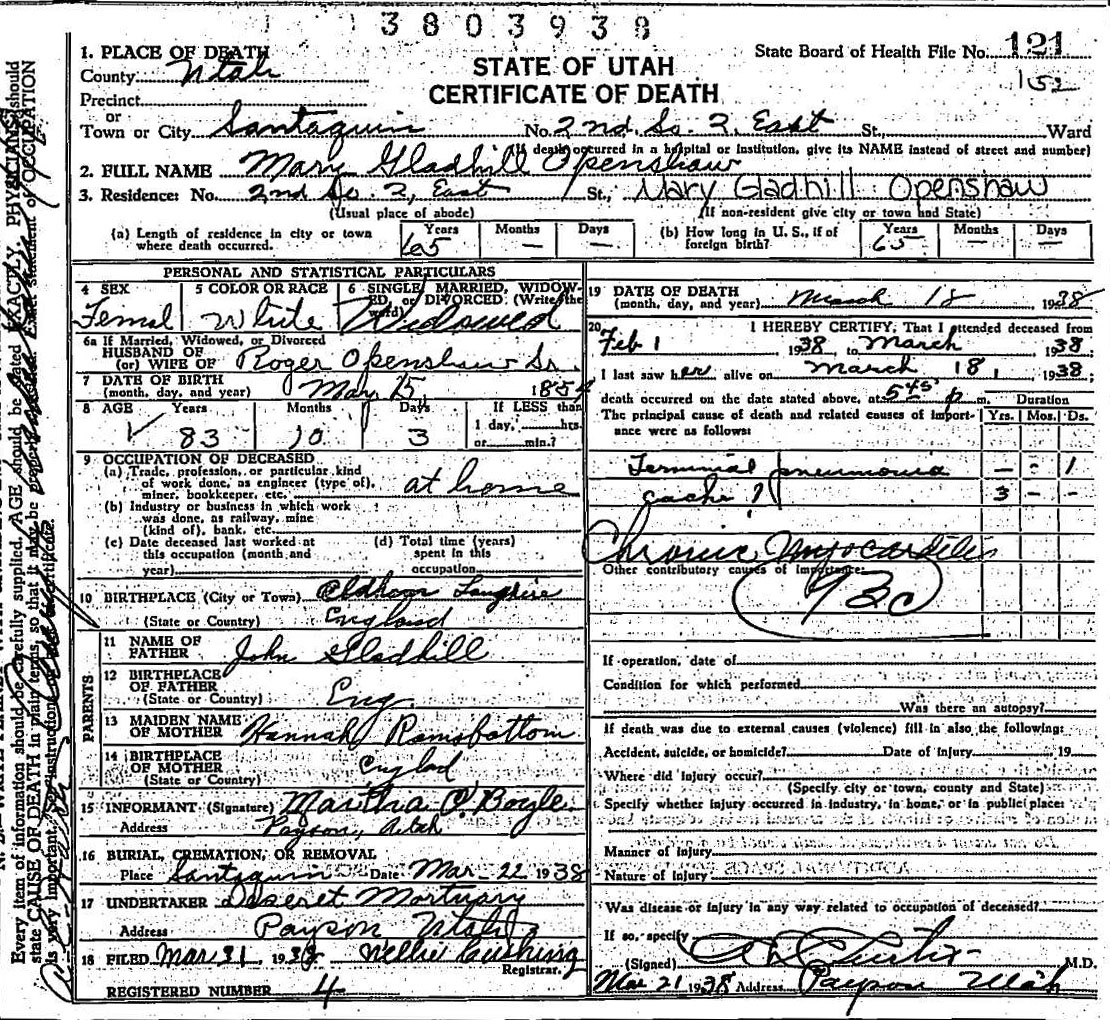 3803938
1. PLACE OF DEATH
County Utah
Precinct
or
Town or City Santaquin No. 2nd. So. 2, East St., Ward
STATE OF UTAH
CERTIFICATE OF DEATH
State Board of Health File No. 121
(If death occurred in a hospital or institution, give its NAME instead of street and number)
2. FULL NAME Mary Gladhill Openshaw
3. Residence: No. 2nd So. 2, East St., Mary Gladhill Openshaw
(Usual place of abode) (If non-resident give city or town and State)
(a) Length of residence in city or town where death occurred. Years 65 Months — Days —
(b) How long in U. S., if of foreign birth? Years 65 Months — Days —
PERSONAL AND STATISTICAL PARTICULARS
4 SEX Femal
5 COLOR OR RACE White
6 SINGLE, MARRIED, WIDOWED, or DIVORCED (Write the word) Widowed
6a If Married, Widowed, or Divorced
HUSBAND OF
(or) WIFE OF Roger Openshaw Sr.
7 DATE OF BIRTH
(month, day, and year) May 15 1854
8 AGE Years 83 Months 10 Days 3 If LESS than 1 day, hrs. or min.?
9 OCCUPATION OF DECEASED
(a) Trade, profession, or particular kind
of work done, as engineer (type of),
miner, bookkeeper, etc. at home
(b) Industry or business in which work
was done, as railway, mine
(kind of), bank, etc.
(c) Date deceased last worked at
this occupation (month and
year)
(d) Total time (years)
spent in this
occupation
10 BIRTHPLACE (City or Town) Oldham
(State or Country) England
PARENTS
11 NAME OF
FATHER John Gladhill
12 BIRTHPLACE
OF FATHER Eng.
(State or Country)
13 MAIDEN NAME
OF MOTHER Hannah Ramsbottom
14 BIRTHPLACE
OF MOTHER Englad
(State or Country)
15 INFORMANT (Signature) Martha O. Boyle
Address Payson, Utah
16 BURIAL, CREMATION, OR REMOVAL
Place Santaquin Date Mar-22 1938
17 UNDERTAKER Deseret Mortuary
Address Payson Utah
18 FILED Mar 31 1938 Nellie Cushing
Registrar.
REGISTERED NUMBER 4
19 DATE OF DEATH
(month, day, and year) March 18 1938
20 I HEREBY CERTIFY, That I attended deceased from
Feb 1 1938 to March 1938
I last saw her alive on March 18, 1938
death occurred on the date stated above, at 5 45 p m. Duration
The principal cause of death and related causes of importance were as follows: Yrs. Mos. Ds.
Terminal pneumonia — - 1
3 - -
Chronic Myocarditis
Other contributory causes of importance:
93c
If operation, date of
Condition for which performed
Was there an autopsy?
If death was due to external causes (violence) fill in also the following:
Accident, suicide, or homicide? Date of Injury 19
Where did injury occur?
(Specify city or town, county and State)
Specify whether injury occurred in industry, in home, or in public place:
Manner of Injury
Nature of Injury
Was disease or injury in any way related to occupation of deceased?
If so, specify
(Signed) M.D.
Mar 21 1938 Address Payson Utah
Every item of information should be carefully supplied. AGE should be stated EXACTLY. PHYSICIANS should
state CAUSE OF DEATH in plain terms, so that it may be properly classified. Exact statement of OCCUPATION
is very important. See instructions on back of certificate.